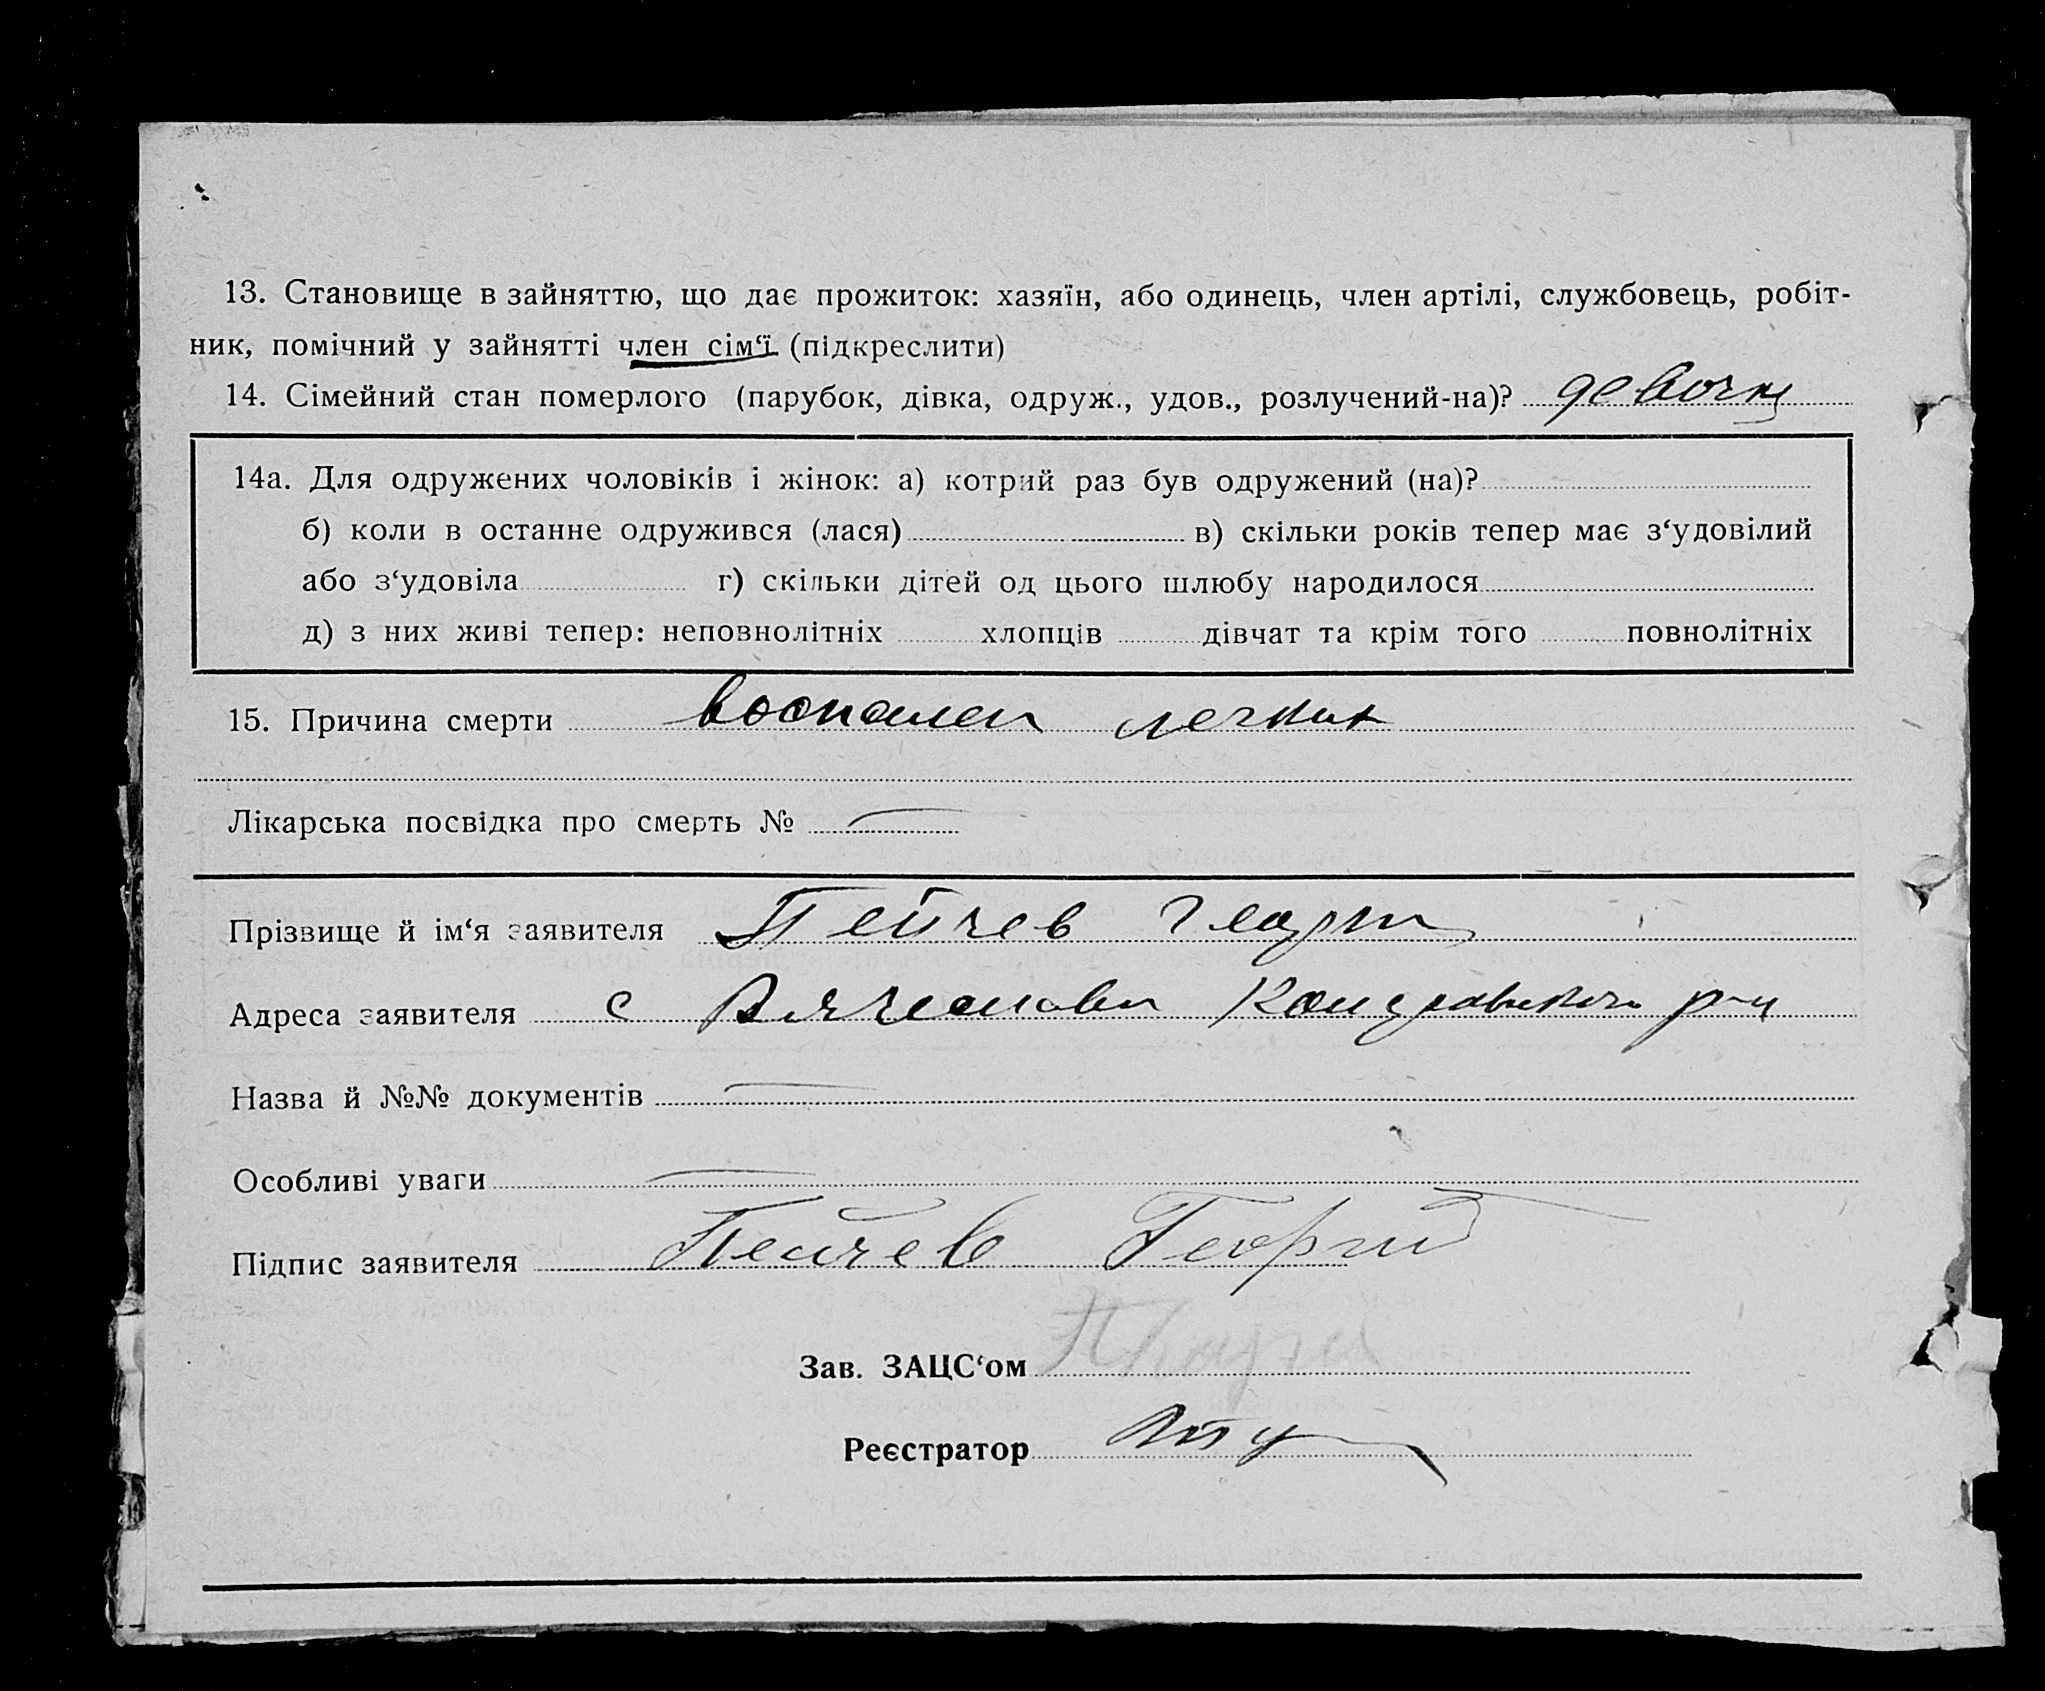 13. Становище в зайняттю, що дає прожиток: хазяїн, або одинець, член артілі, службовець, робіт-
ник, помічний у зайнятті член сім‘ї (підкреслити)
14. Сімейний стан померлого (парубок, дівка, одруж., удов., розлучений-на)? девочка
14а. Для одружених чоловіків і жінок: а) котрий раз був одружений (на)?
б) коли в останне одружився (лася) в) скільки років тепер має з‘удовілий
або з‘удовіла г) скільки дітей од цього шлюбу народилося
д) з них живі тепер: неповнолітніх хлопців дівчат та крім того повнолітніх
15. Причина смерти воспален легких
Лікарська посвідка про смерть №
Прізвище й ім‘я заявителя Пейчев Георги
Адреса заявителя с р-н
Назва й №№ документів
Особливі уваги
Підпис заявителя Пейчев Георгий
Зав. ЗАЦС‘ом
Реєстратор